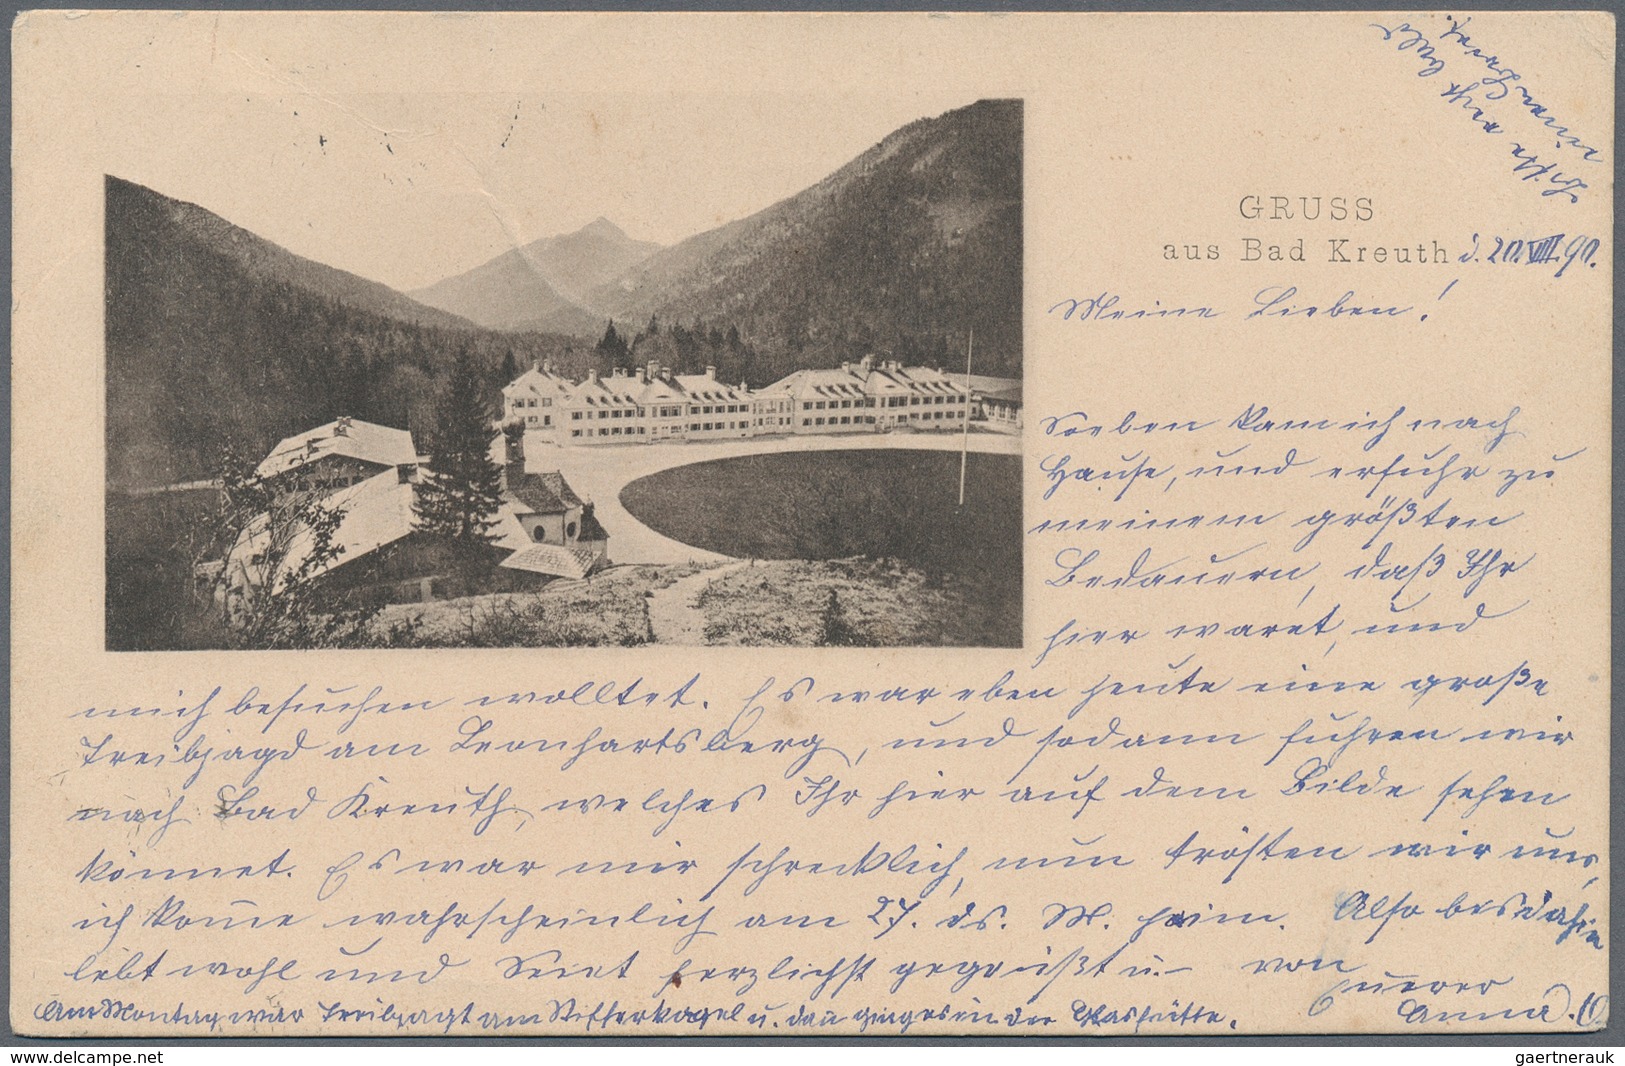 GRUSS
aus Bad Kreuth d. 20. VIII. 90.
Meine Lieben!
Soeben kam ich nach
Hause, und erfuhr zu
meinem größten
Bedauern, daß Ihr
hier waret, und
mich besuchen wolltet. Es war eben heute eine große
Treibjagd am Leonhartsberg, und sodann fuhren wir
nach Bad Kreuth, welches Ihr hier auf dem Bilde sehen
könnet. Es war mir schrecklich, nun trösten wir uns,
ich kom̅e wahrscheinlich am 27. ds. M. heim. Also bis dahin
lebt wohl und Seiet herzlichst gegrüßt u. von
Euerer
Anna. O.
Am Montag war Treibjagt am u. dan̅ ging es in der Glashütte.
Bitte
einen
gaertnerauk